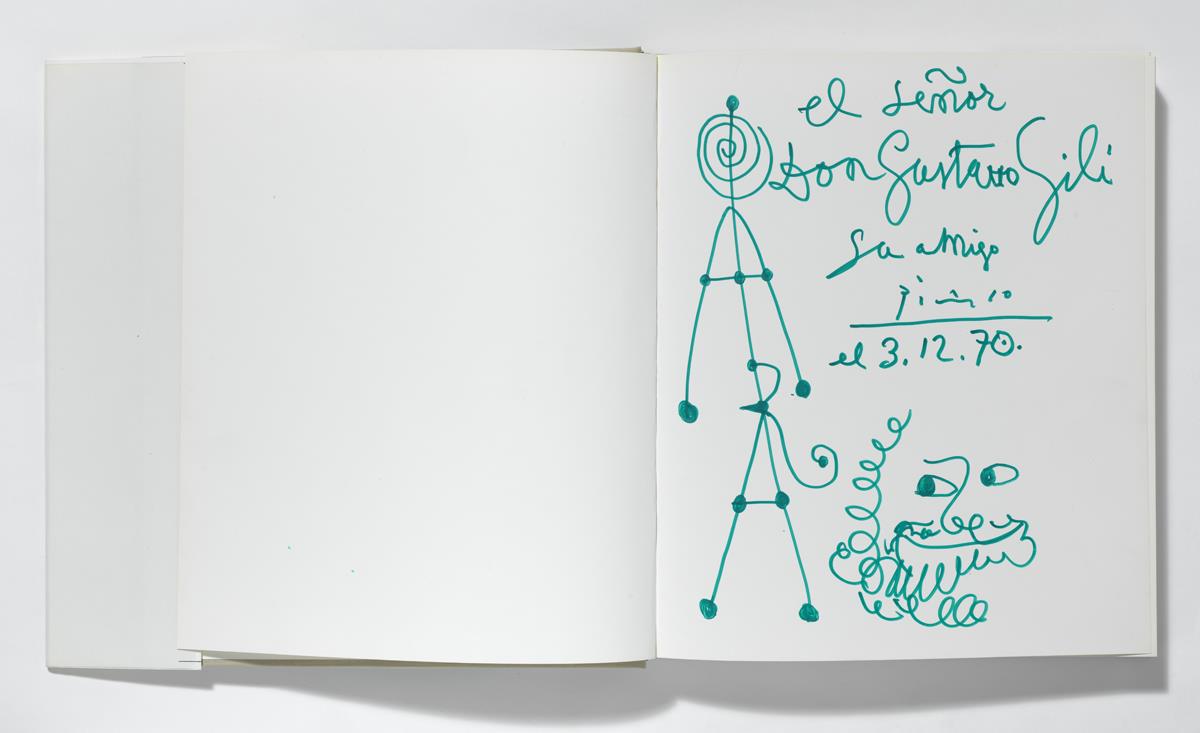 el señor
Don Gustavo Gili
Su amigo
Picasso
el 3.12.70.